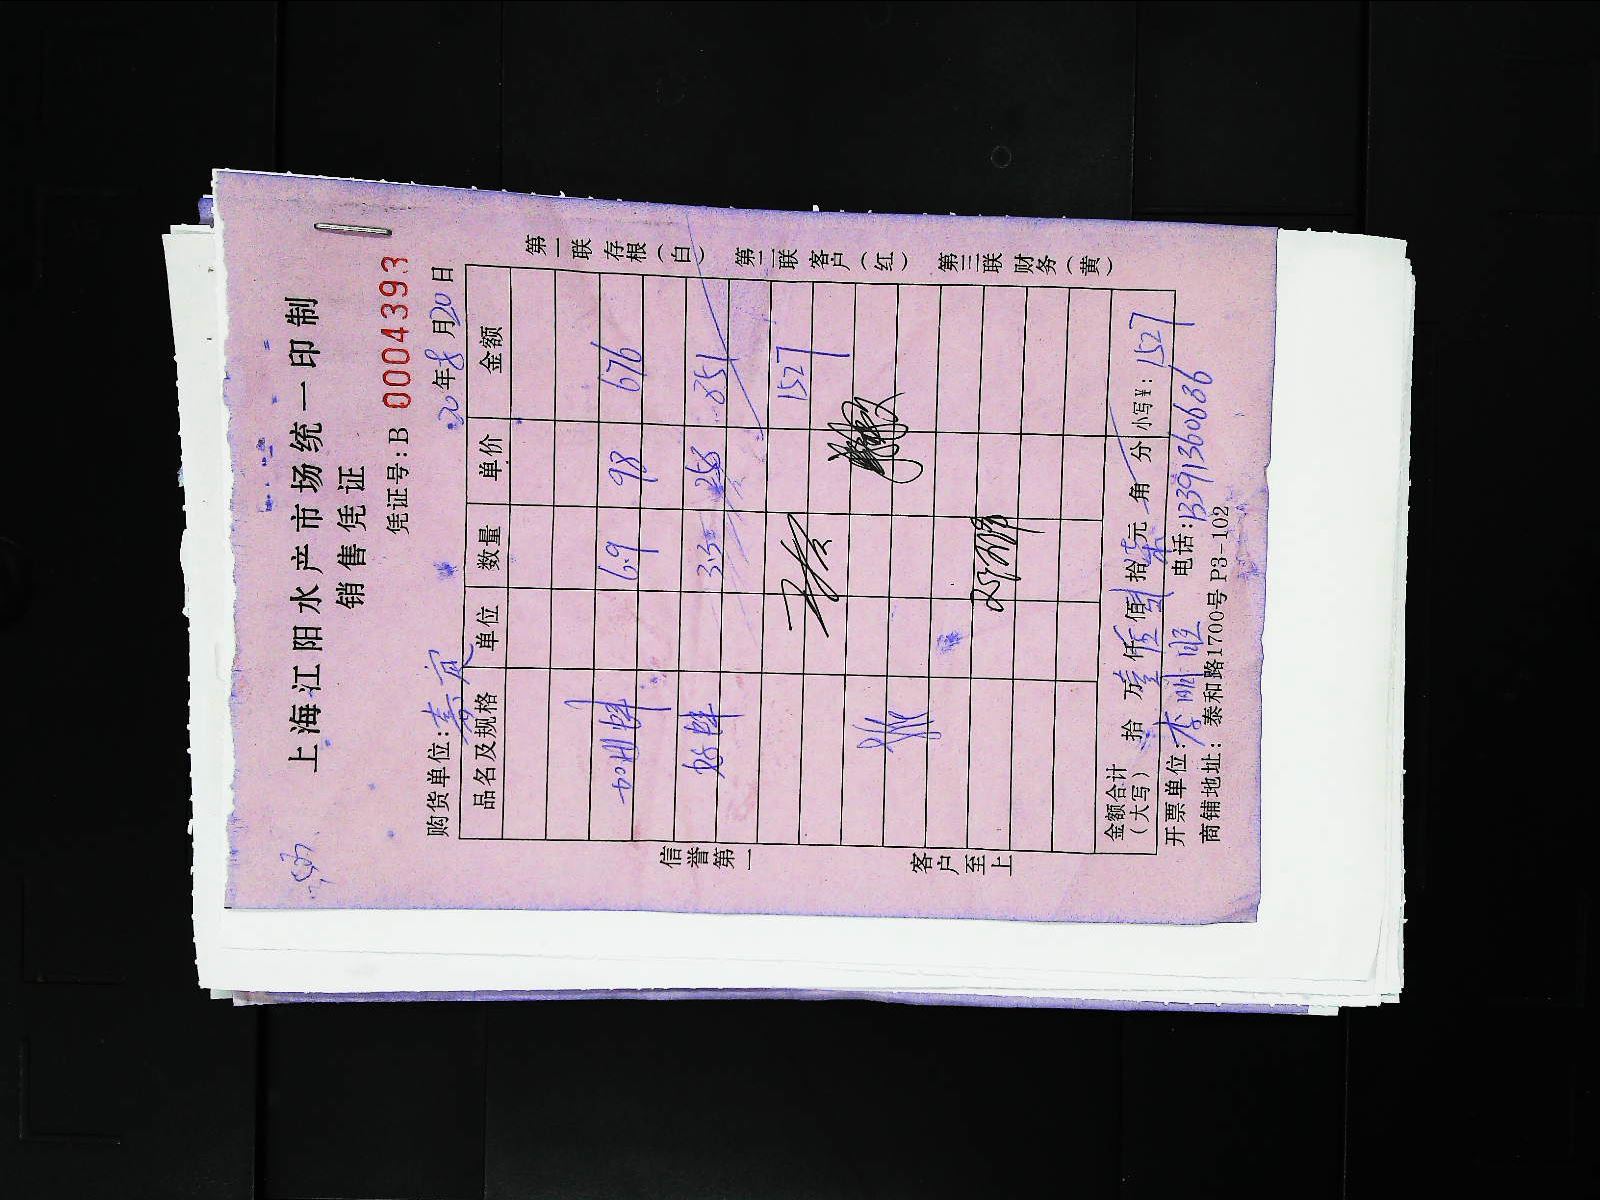 上海江阳水产市场统一印制
销售凭证
凭证号:B 0004393
购货单位: 20年8月20日
品名及规格 单位 数量 单价 金额
6.9 98 676
3.3 258 851
1527
金额合计(大写) 拾 万壹仟伍佰 拾柒元 角 分 小写¥: 1527
开票单位: 电话: 13391360636
商铺地址: 泰和路1700号P3-102
第一联 存根(白) 第二联 客户(红) 第三联 财务(黄)
信誉第一 客户至上